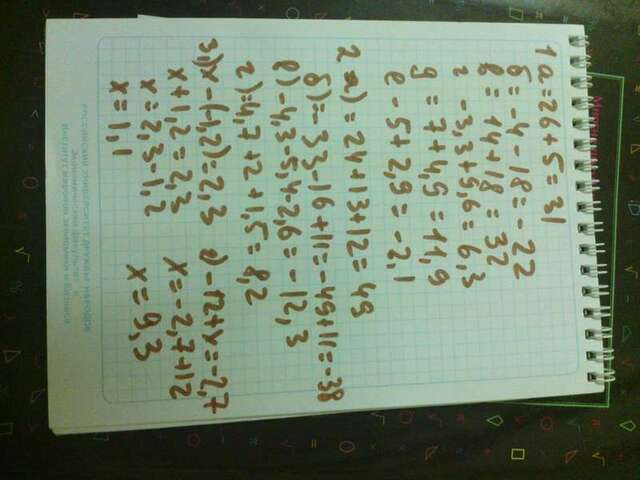 1 а = 26 + 5 = 31
б = -4 - 18 = -22
в = 14 + 18 = 32
г - 3,3 + 5,6 = 6,3
д = 7 + 4,9 = 11,9
е - 5 + 2,9 = -2,1
2 а) = 24 + 13 + 12 = 49
б) = - 33 - 16 + 11 = - 49 + 11 = - 38
в) - 4,3 - 5,4 - 2,6 = - 12,3
г) = 4,7 + 2 + 1,5 = 8,2
3) x - (-1,2) = 2,3
x + 1,2 = 2,3
x = 2,3 - 1,2
x = 1,1
- 12 + x = -2,7
x = -2,7 + 12
x = 9,3
РОССИЙСКИЙ УНИВЕРСИТЕТ ДРУЖБЫ НАРОДОВ
Экономический факультет
Институт мировой экономики и бизнеса